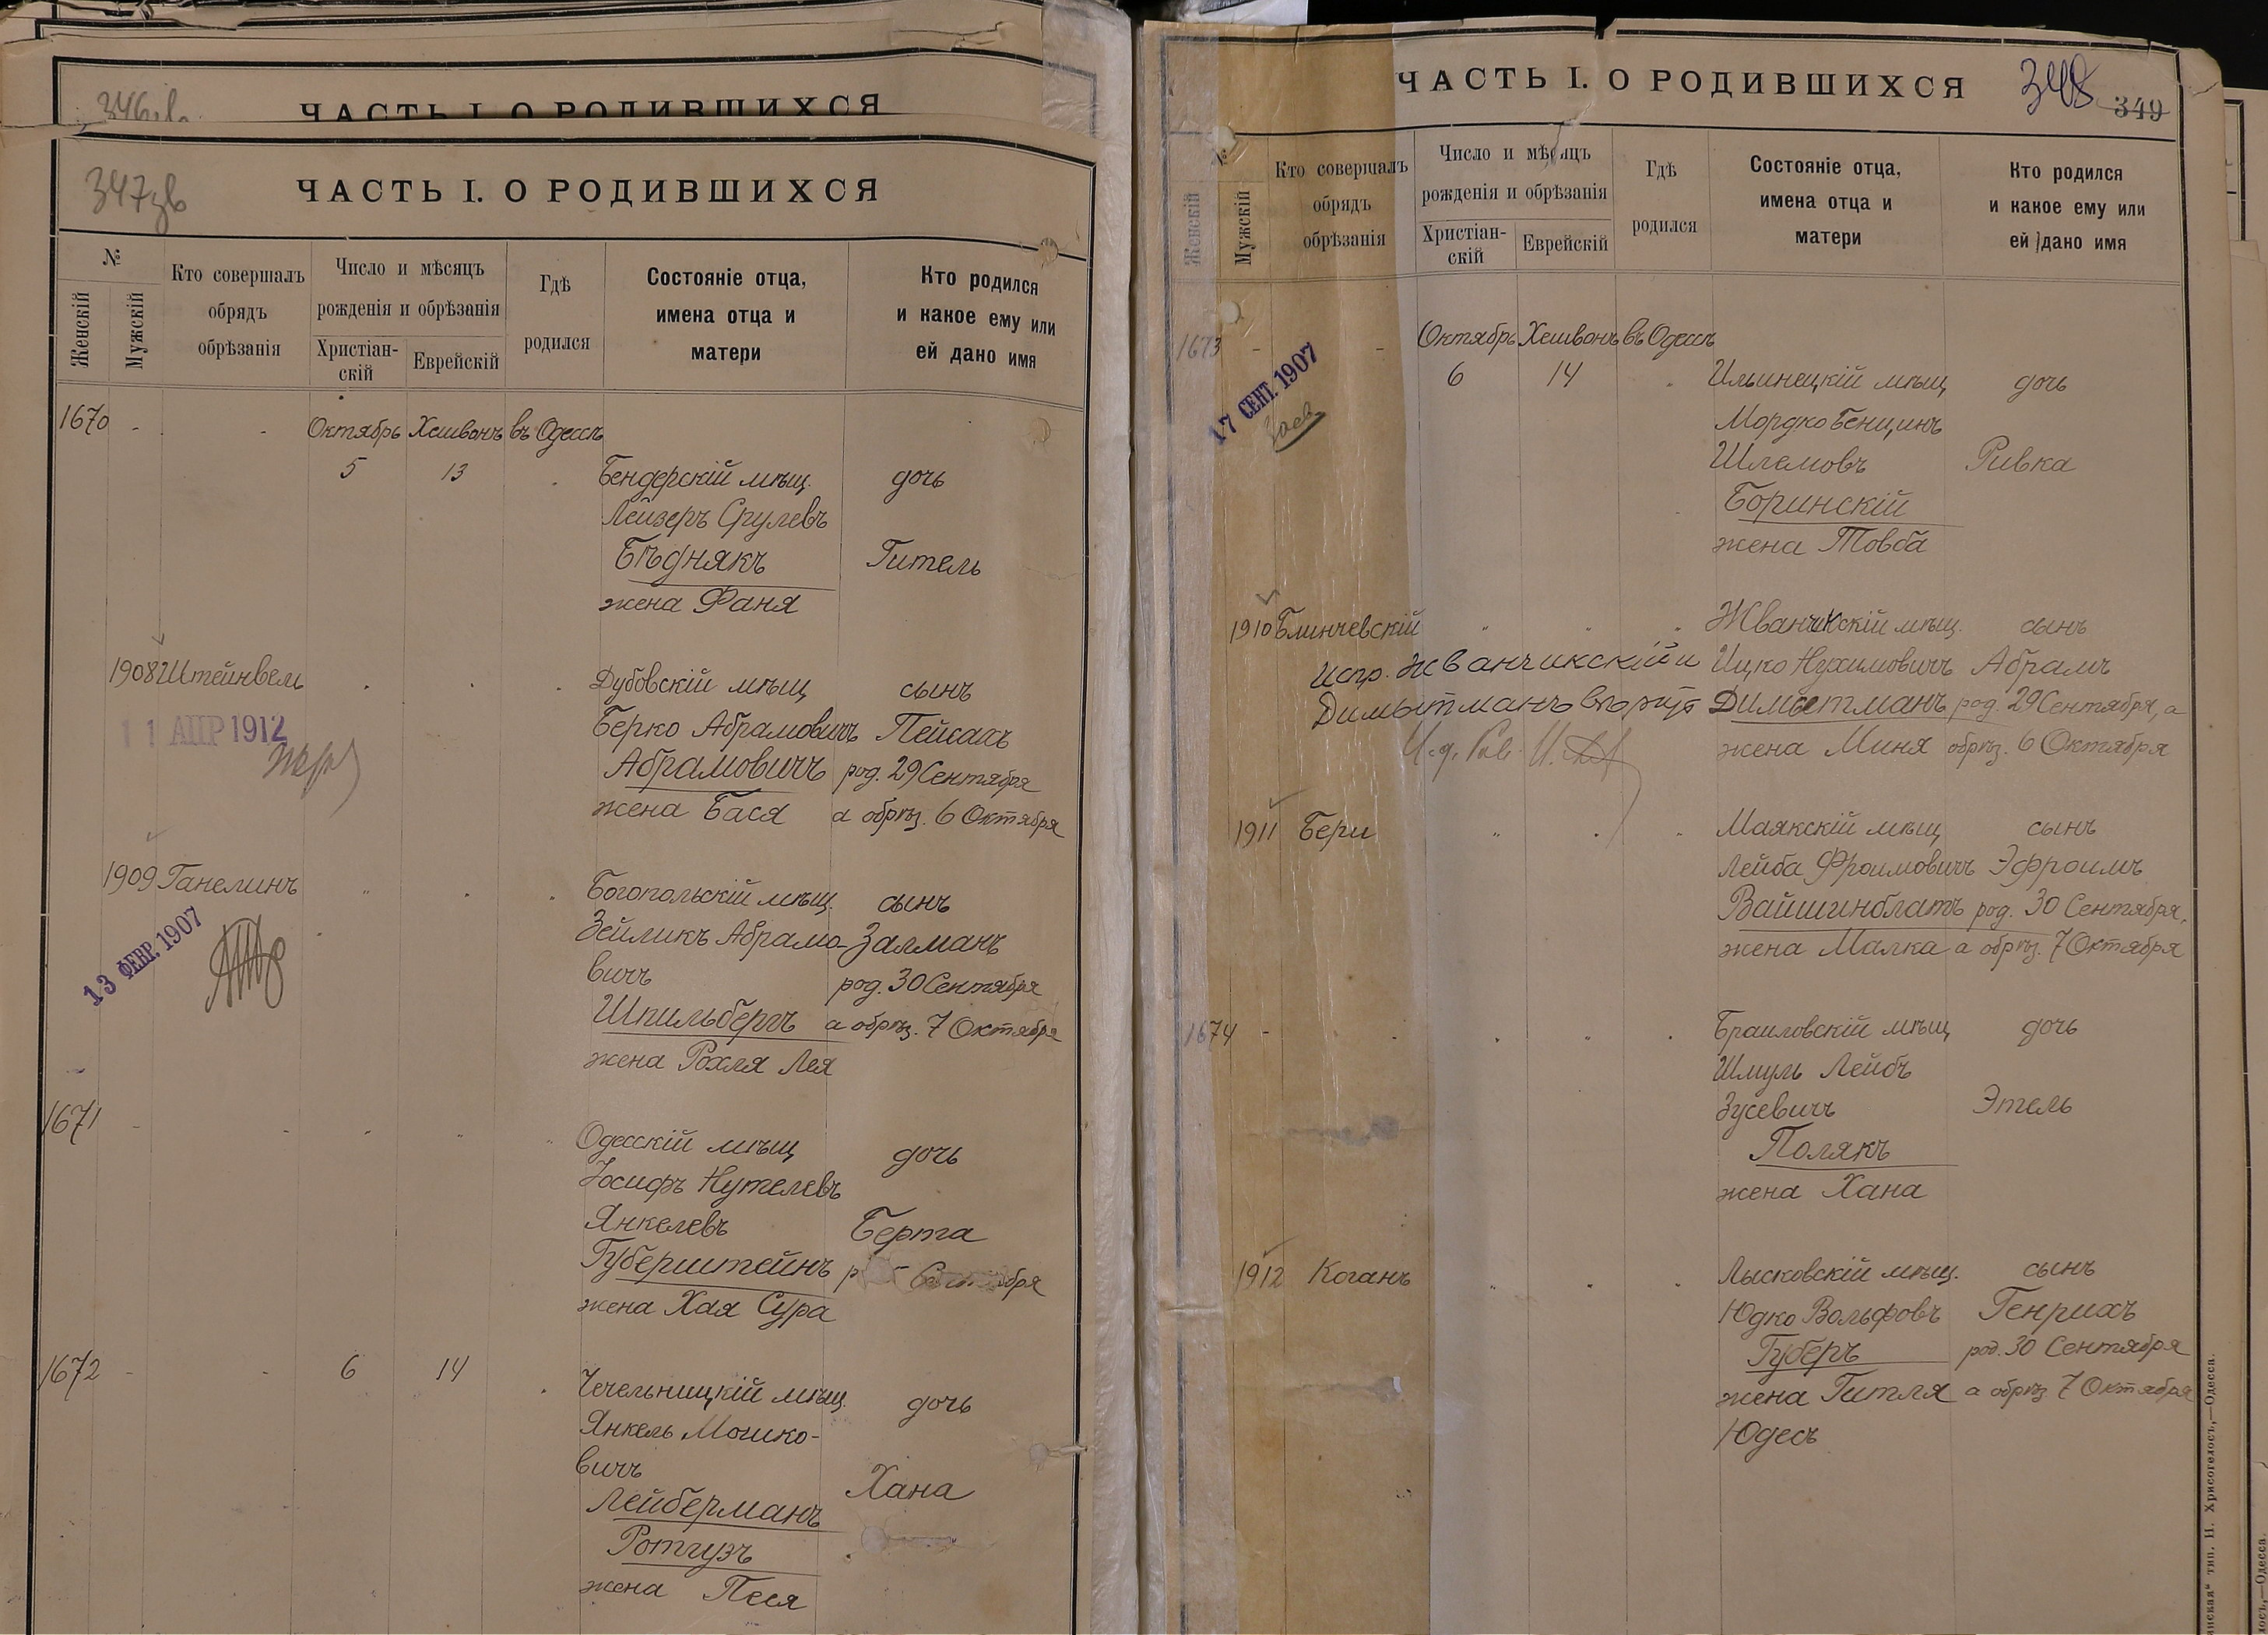 346зв
ЧАСТЬ I. О РОДИВШИХСЯ
347зв
ЧАСТЬ I. О РОДИВШИХСЯ
№
Женскій
Мужскій
Кто совершалъ
обрядъ
обрѣзанія
Число и мѣсяцъ
рожденія и обрѣзанія
Христіан-
скій
Еврейскій
Гдѣ
родился
Состояніе отца,
имена отца и
матери
Кто родился
и какое ему или
ей дано имя
1670 - - Октябрь Хешвонъ въ Одессѣ
5 13 Бендерскій мѣщ. дочь
Лейзеръ Срулевъ
Бѣднякъ Гитель
жена Фаня
1908 Штейнвель " " " Дубовскій мѣщ сынъ
11 АПР 1912
Берко Абрамовичъ Пейсахъ
Абрамовичъ род. 29 Сентября
жена Бася а обрѣз. 6 Октября
1909 Ганелинъ " " " Богопольскій мѣщ. сынъ
13 ФЕВР. 1907
Зейликъ Абрамо- Залманъ
вичъ род. 30 Сентября
Шпильбергъ а обрѣз. 7 Октября
жена Рохля Лея
1671 - - " " " Одесскій мѣщ дочь
Іосифъ Нутелевъ
Янкелевъ Берта
Губерштейнъ
жена Хая Сура
1672 - - 6 14 " Чечельницкій мѣщ. дочь
Янкель Мошко-
вичъ
Лейберманъ Хана
Ротгузъ
жена Песя
ЧАСТЬ I. О РОДИВШИХСЯ
348
349
№
Женскій
Мужскій
Кто совершалъ
обрядъ
обрѣзанія
Число и мѣсяцъ
рожденія и обрѣзанія
Христіан-
скій
Еврейскій
Гдѣ
родился
Состояніе отца,
имена отца и
матери
Кто родился
и какое ему или
ей дано имя
1673 - - Октябрь Хешвонъ въ Одессѣ
17 СЕНТ. 1907
6 14 " Ильинецкій мѣщ дочь
Мордко Бенціинъ
Шлемовъ Ривка
Боринскій
жена Товба
1910 Блинчевскій " " " Жванчикскій мѣщ. сынъ
испр. Жванчикскій и Ицко Нухимовичъ Абрамъ
Димытманъ вѣрить Димытманъ род. 29 Сентября, а
И. д. Рав. жена Миня обрѣз. 6 Октября
1911 Бери " " " Маякскій мѣщ сынъ
Лейба Фроимовичъ Эфроимъ
Вайшинблатъ род. 30 Сентября,
жена Малка а обрѣз. 7 Октября
1674 - " " " " Браиловскій мѣщ дочь
Шмуль Лейбъ
Зусевичъ Этель
Полякъ
жена Хана
1912 Коганъ " " " Лысковскій мѣщ. сынъ
Юдко Вольфовъ Генрихъ
Губеръ род. 30 Сентября
жена Гитля а обрѣз 7 Октября
Юдесъ
тип. Н. Хрисогелосъ,—Одесса.
—Одесса.